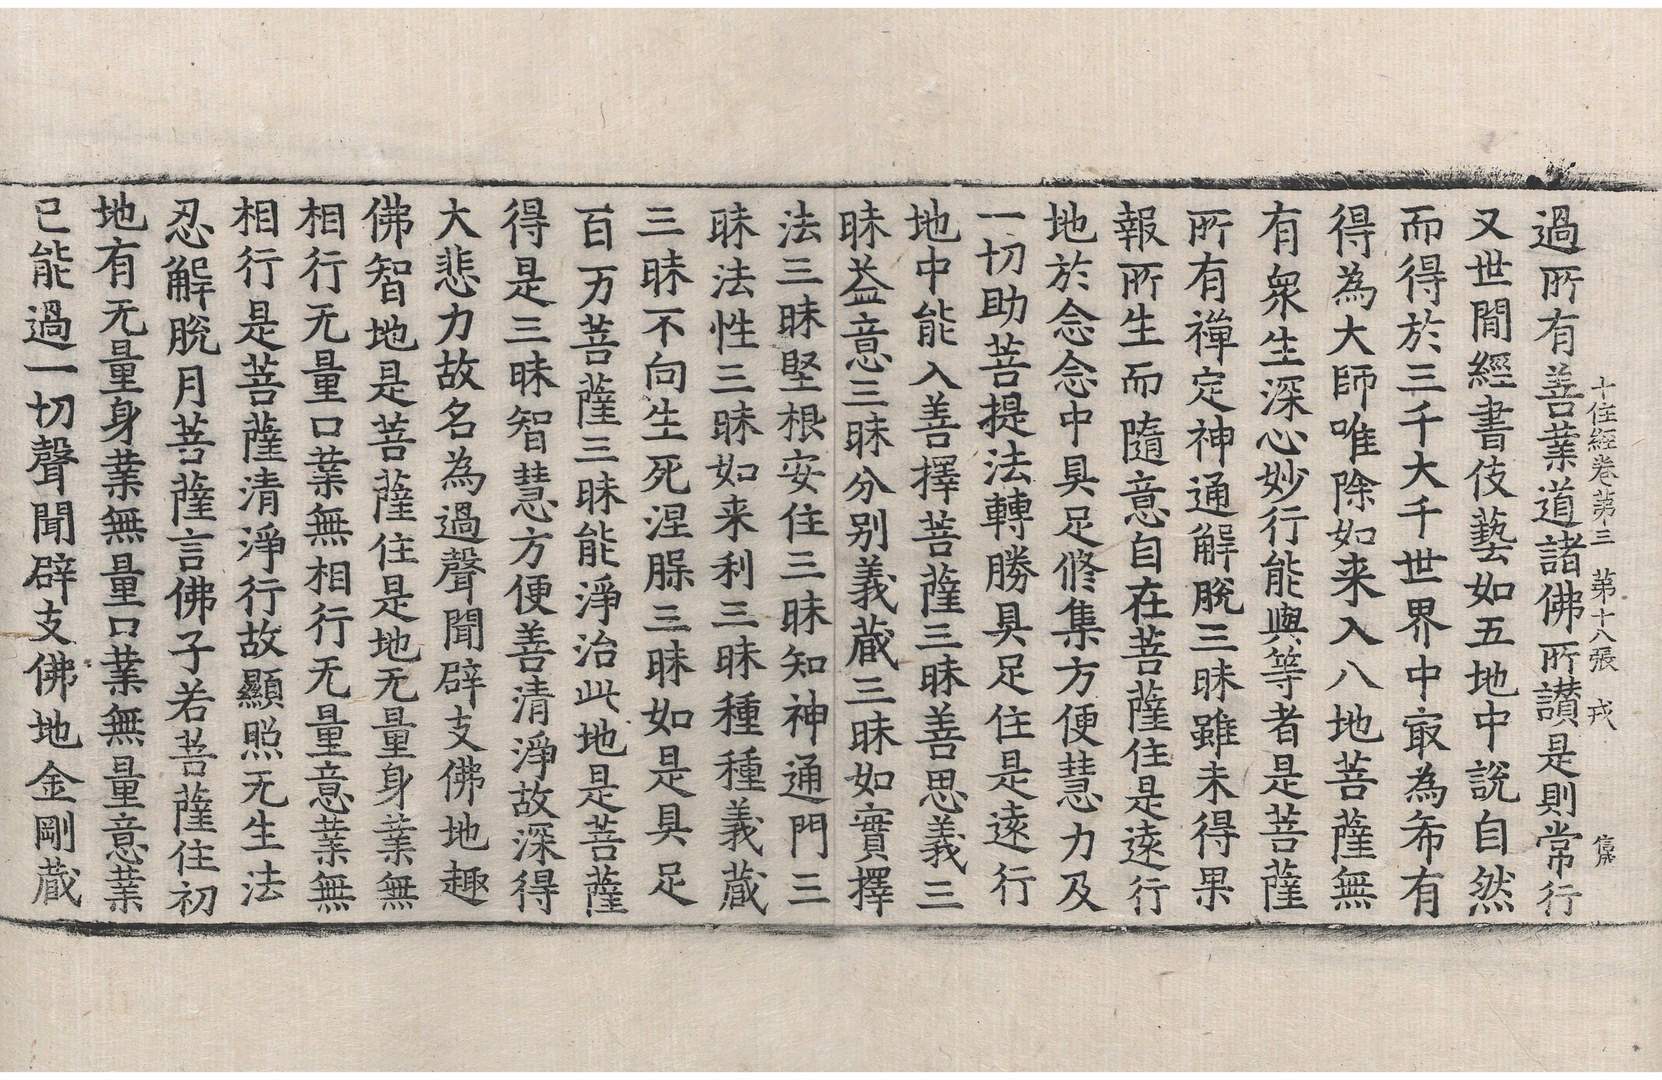 十住經卷第三 第十八張 戎
過所有善業道諸佛所讃是則常行
又世閒經書伎藝如五地中說自然
而得於三千大千世界中㝡為希有
得為大師唯除如来入八地菩薩無
有衆生深心妙行能與等者是菩薩
所有禪定神通解脫三昧雖未得果
報所生而隨意自在菩薩住是遠行
地於念念中具足修集方便慧力及
一切助菩提法轉勝具足住是遠行
地中能入善擇菩薩三昧善思義三
昧益意三昧分别義蔵三昧如實擇
法三昧堅根安住三昧知神通門三
昧法性三昧如来利三昧種種義蔵
三昧不向生死涅槃三昧如是具足
百万菩薩三昧能淨治此地是菩薩
得是三昧智慧方便善清淨故深得
大悲力故名為過聲聞辟支佛地趣
佛智地是菩薩住是地无量身業無
相行无量口業無相行无量意業無
相行是菩薩清淨行故顯照无生法
忍解脫月菩薩言佛子若菩薩住初
地有无量身業無量口業無量意業
已能過一切聲聞辟支佛地金剛蔵